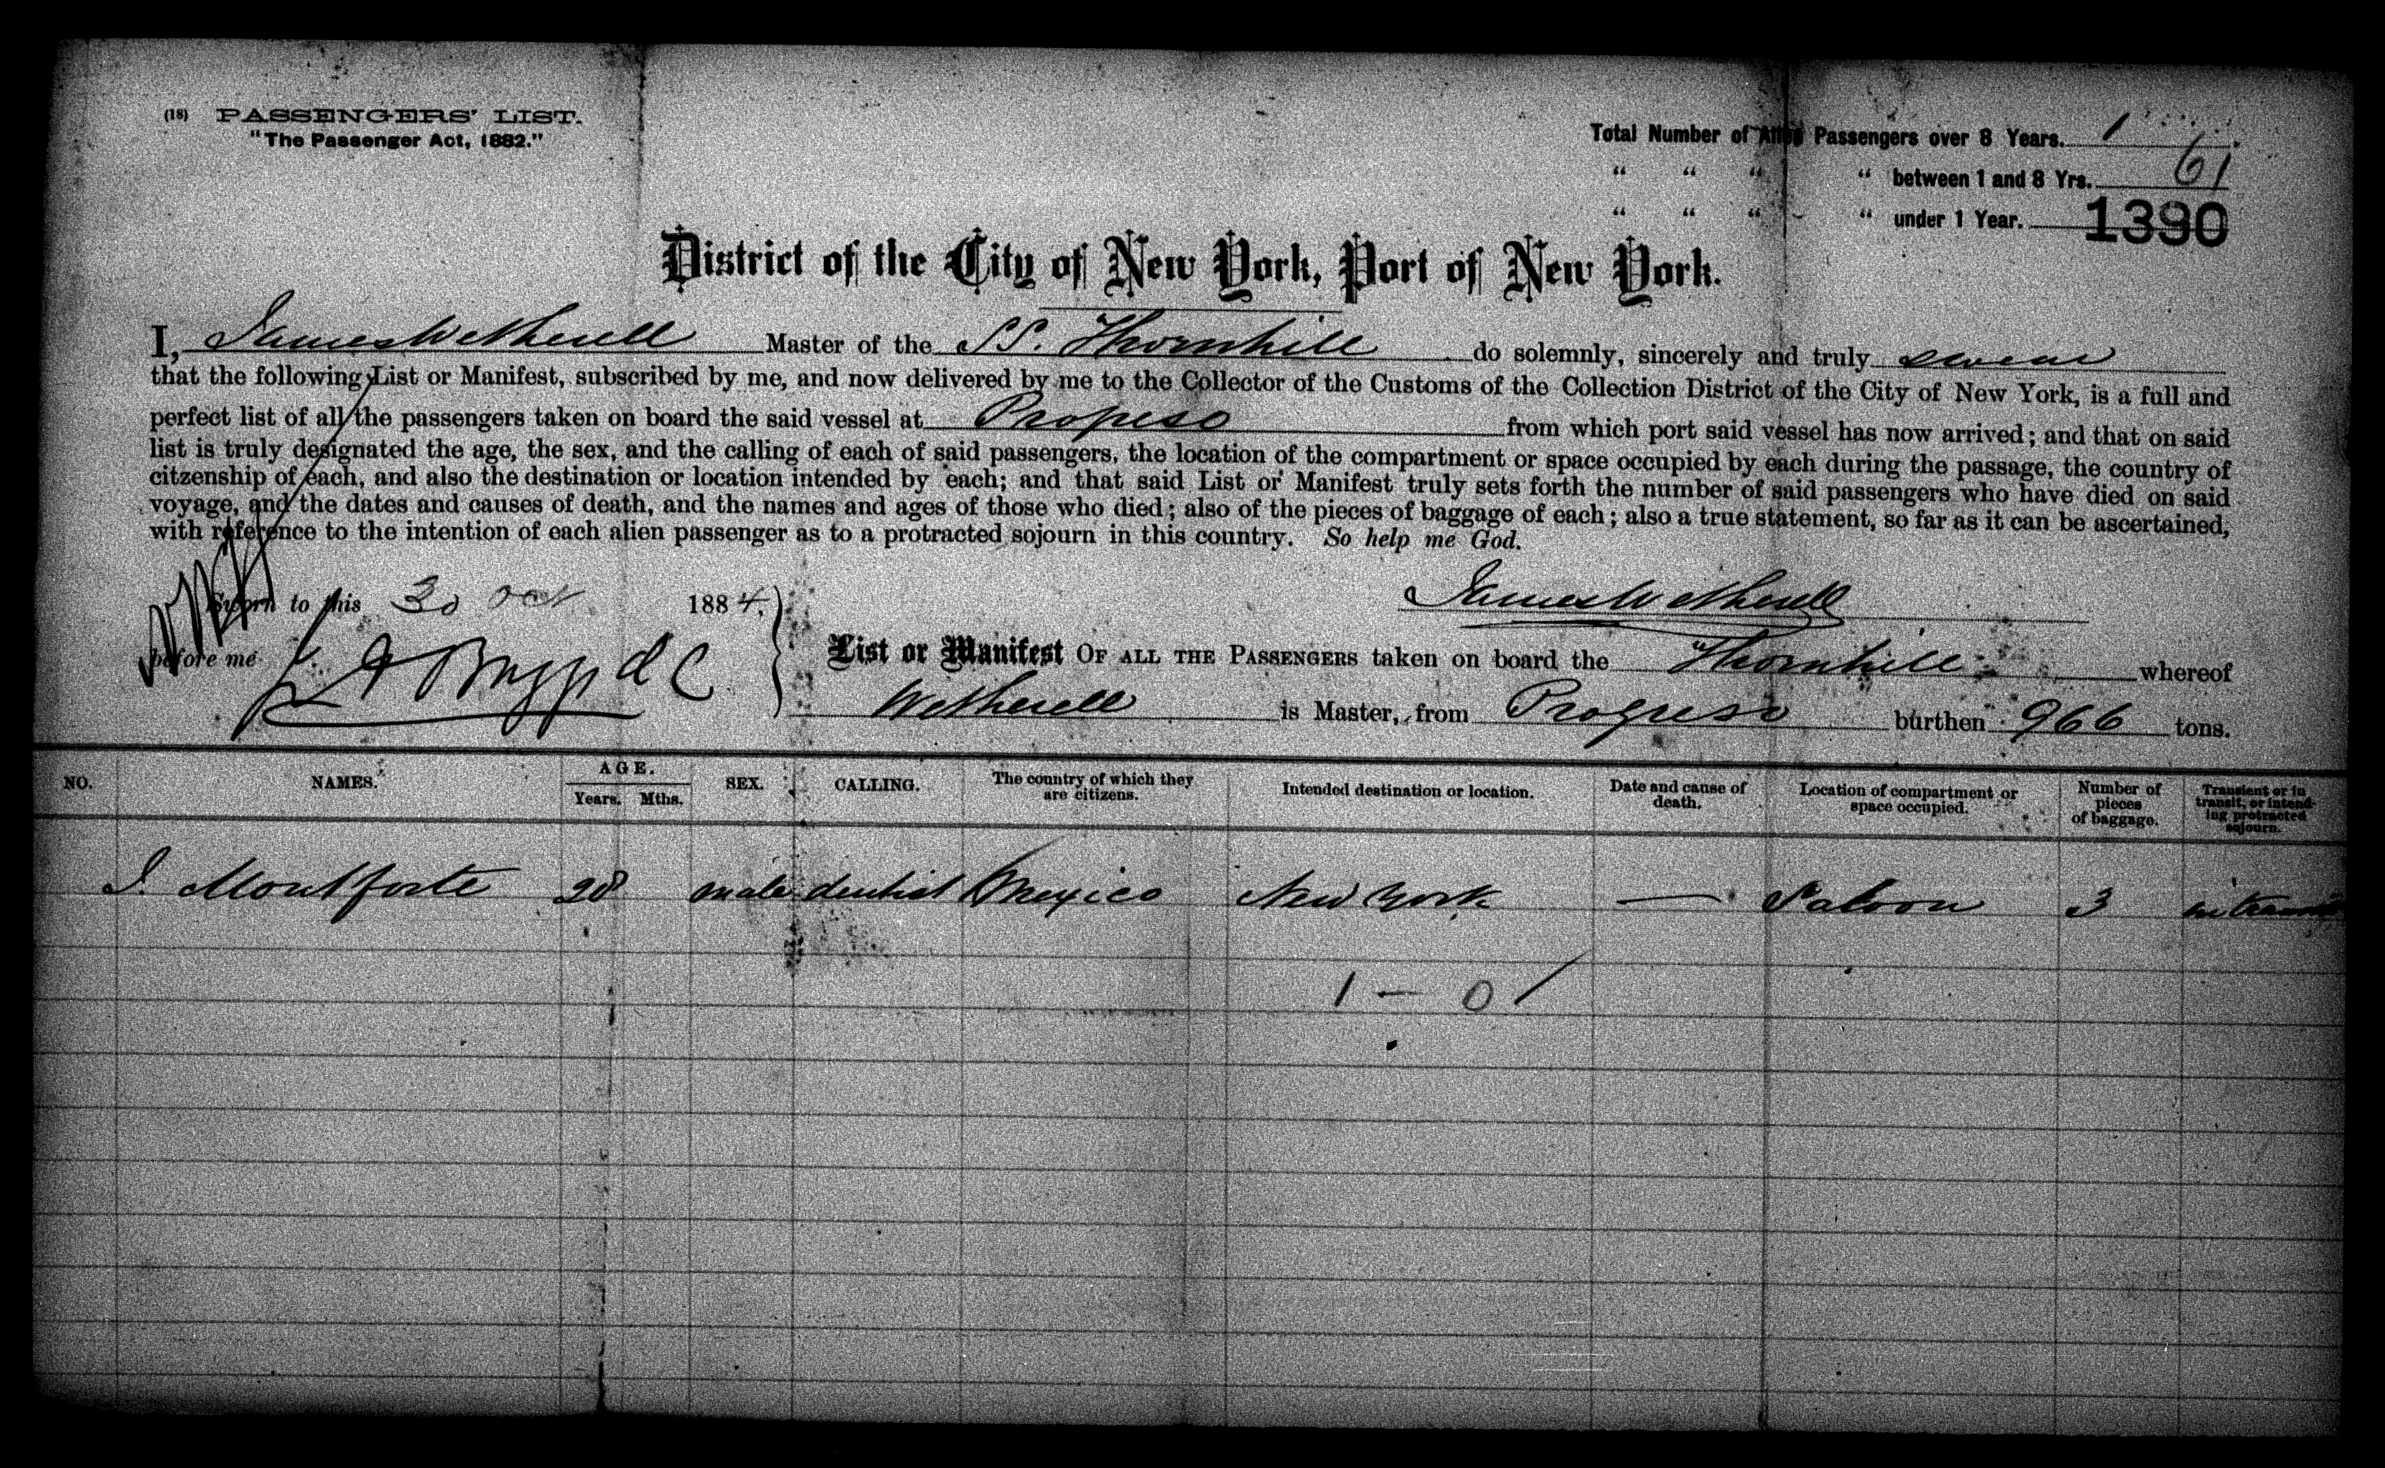 (18) PASSENGERS' LIST.
"The Passenger Act, 1882."
Total Number of Alien Passengers over 8 Years. 1
" " " " between 1 and 8 Yrs. 61
" " " " under 1 Year. 1390
District of the City of New York, Port of New York.
I, James Wetherell Master of the SS. Thornhill do solemnly, sincerely and truly swear
that the following List or Manifest, subscribed by me, and now delivered by me to the Collector of the Customs of the Collection District of the City of New York, is a full and
perfect list of all the passengers taken on board the said vessel at Progreso from which port said vessel has now arrived; and that on said
list is truly designated the age, the sex, and the calling of each of said passengers, the location of the compartment or space occupied by each during the passage, the country of
citzenship of each, and also the destination or location intended by each; and that said List or Manifest truly sets forth the number of said passengers who have died on said
voyage, and the dates and causes of death, and the names and ages of those who died; also of the pieces of baggage of each; also a true statement, so far as it can be ascertained,
with reference to the intention of each alien passenger as to a protracted sojourn in this country. So help me God.
Sworn to this 30 Oct 1884.
James Wetherell
before me D C
List or Manifest OF ALL THE PASSENGERS taken on board the Thornhill whereof
Wetherell is Master, from Progreso burthen 966 tons.
NO. NAMES. AGE. Years. Mths. SEX. CALLING. The country of which they are citizens. Intended destination or location. Date and cause of death. Location of compartment or space occupied. Number of pieces of baggage. Transient or in transit, or intending protracted sojourn.
J. Montforte 28 male dentist Mexico New York — Saloon 3 in transit
1 — 0 /